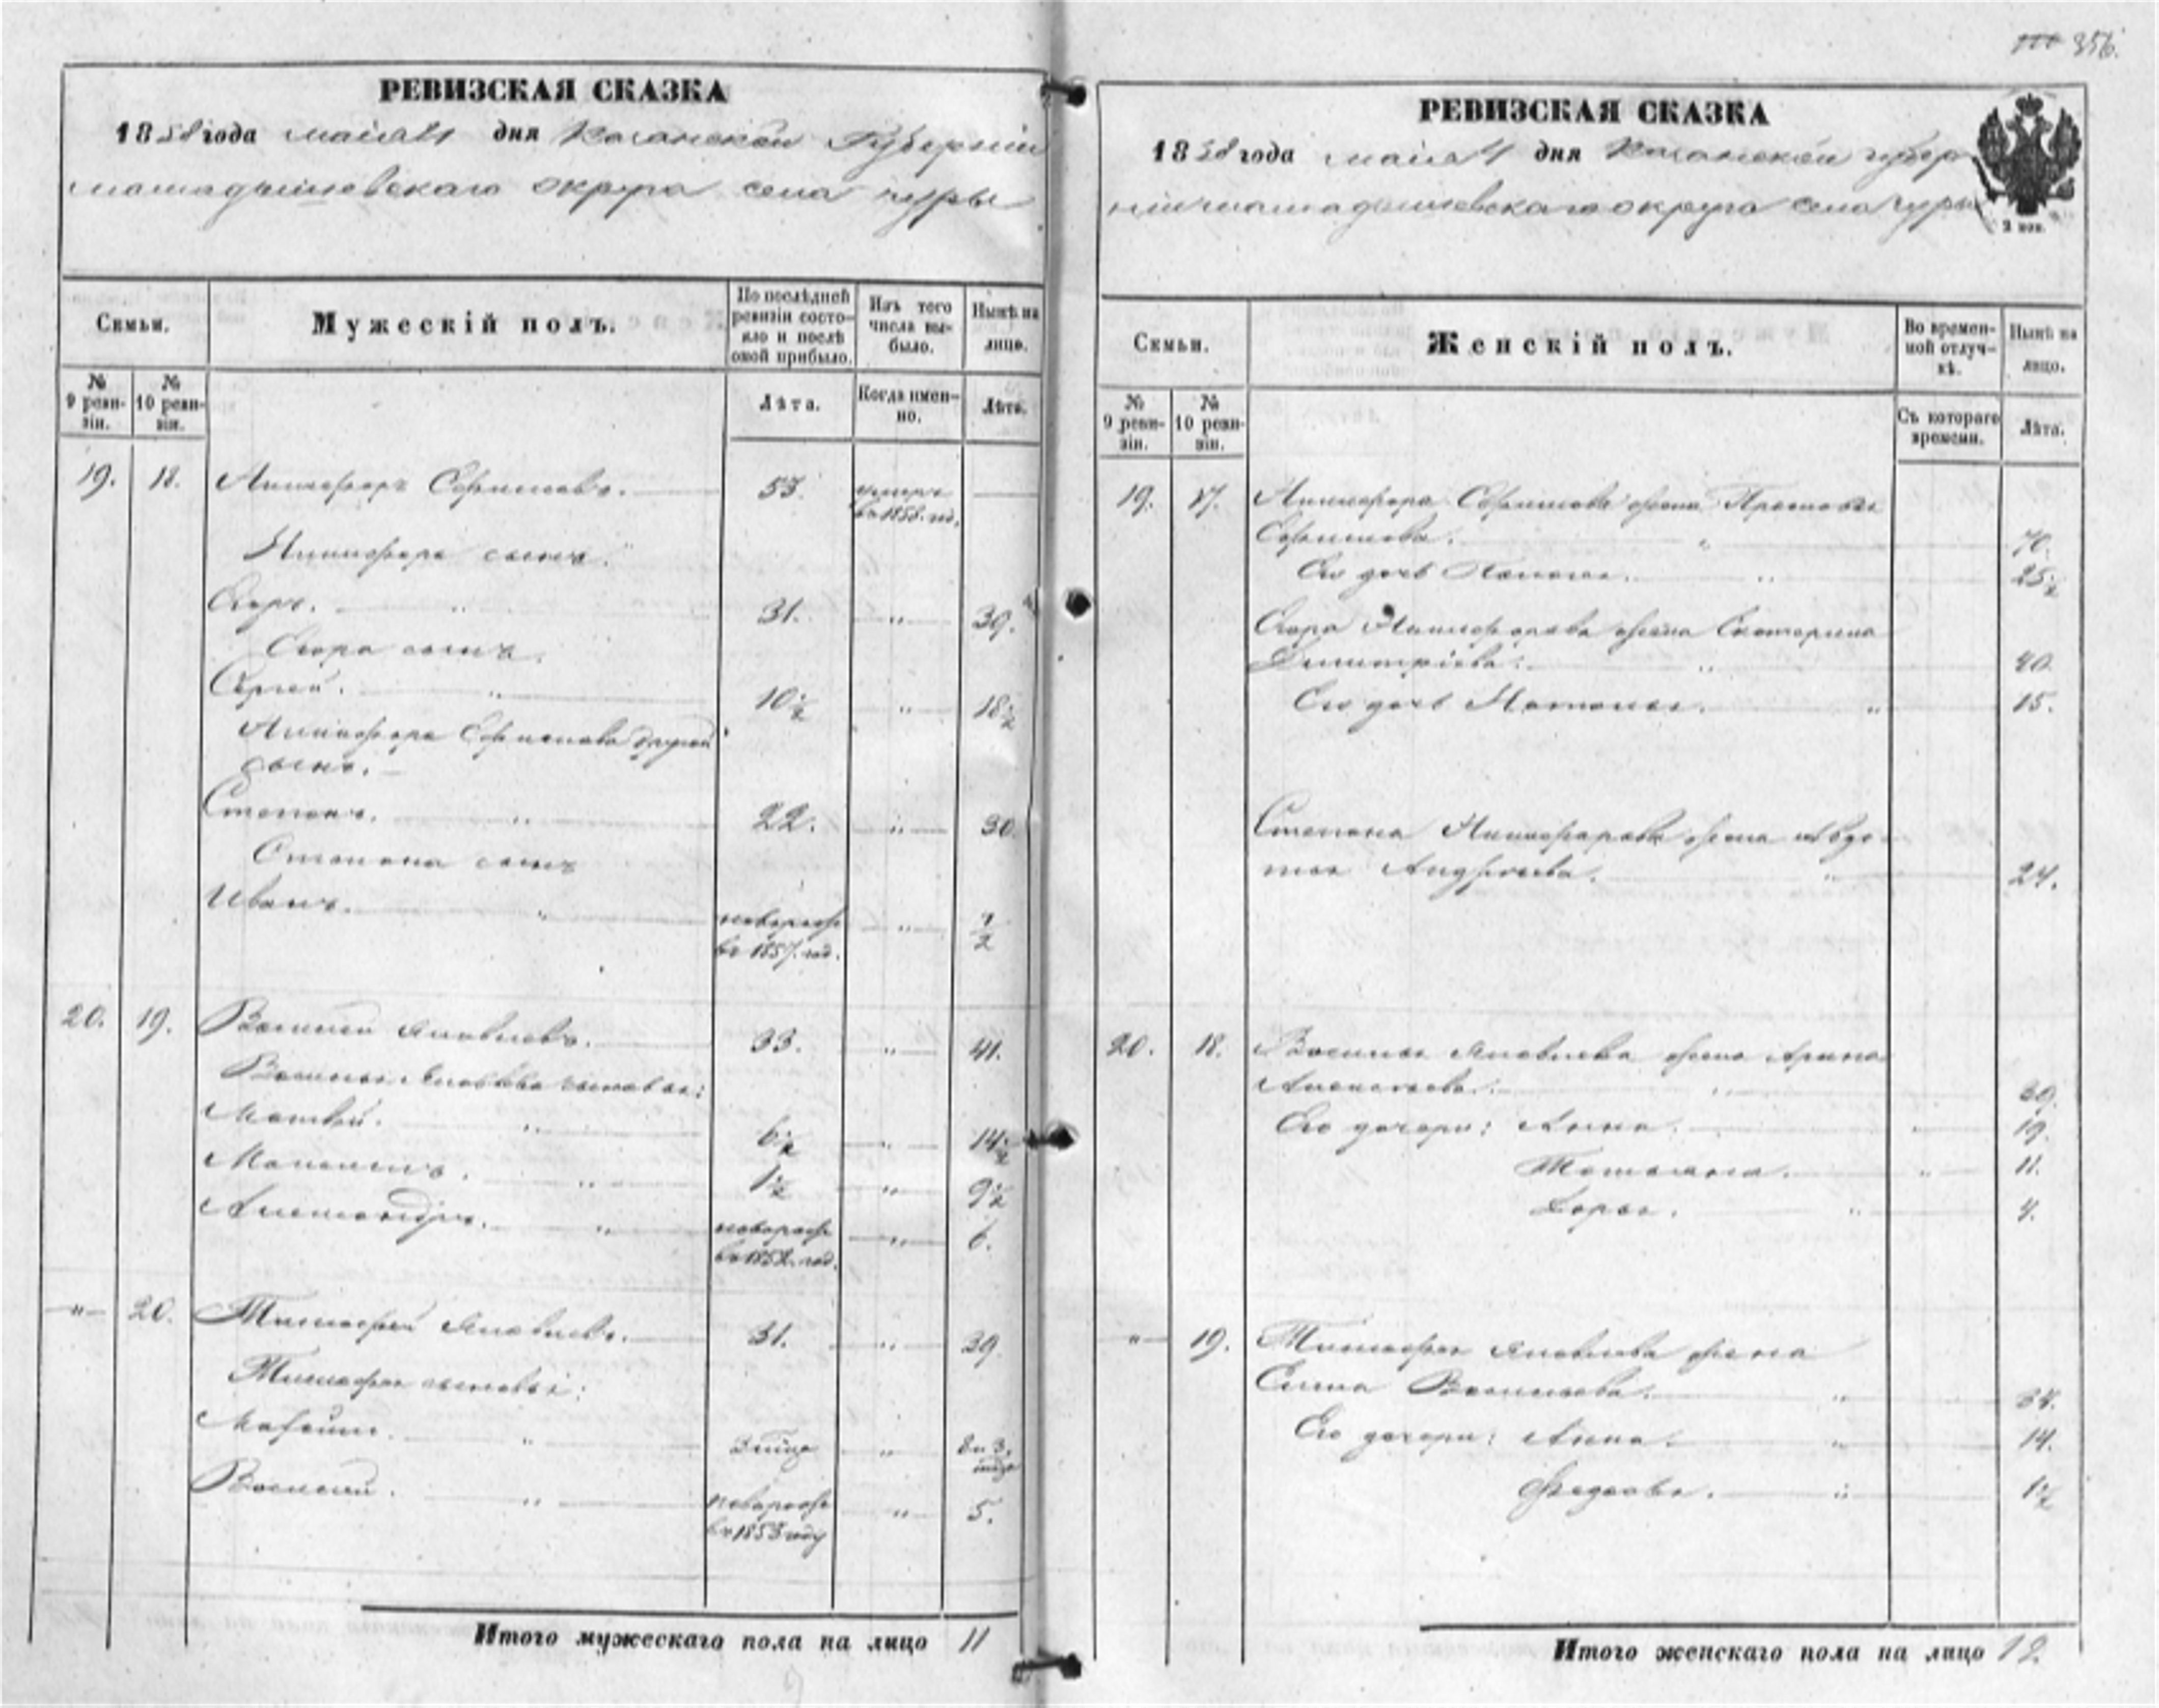 356.
РЕВИЗСКАЯ СКАЗКА
1858 года маія 4 дня Казанской Губерніи
мамадышевскаго округа села чуры
Семьи.
Мужескій полъ.
По послѣдней ревизіи состояло и послѣ оной прибыло.
Изъ того числа выбыло.
Нынѣ на лицо.
№ 9 ревизіи.
№ 10 ревизіи.
Лѣта.
Когда именно.
Лѣта.
19. 18. Никифоръ Ефимовъ. 53. умеръ
в 1858. год.
Никифора сынъ.
Егоръ. " 31. " 39.
Егора сынъ.
Сергей. " 10 1/2 " 18 1/2
Никифора Ефимова другой
сынъ.
Степанъ. " 22. " 30.
Степана сынъ
Иванъ. " новорож " 1/2
в 1857. год.
20. 19. Василей Яковлевъ. 33. " 41.
Василья Яковлева сыновья:
Матвей. " 6 1/2 " 14 1/2
" 1 1/2 " 9 1/2
Александръ. " новорож " 6.
в 1852. год.
" 20. Тимофей Яковлевъ. 31. " 39.
Тимофея сыновьі:
" "
Василий. " новорож " 5.
в 1853 году
Итого мужескаго пола на лицо 11
РЕВИЗСКАЯ СКАЗКА
1858 года маія 4 дня Казанской губер
ніи мамадышевскаго округа села Чуры
2 коп.
Семьи.
Женскій полъ.
Во временной отлучкѣ.
Нынѣ на лицо.
№ 9 ревизіи.
№ 10 ревизіи.
Съ котораго времени.
Лѣта.
19. 17. Никифора Ефимова жена
Ефимова. " 70.
Его дочь " 25 1/2
Егора Никифорова жена Екатерина
Димитріева. " 40.
Его дочь Наталья. " 15.
Степана Никифорова жена Авдо-
тья Андреева. " 24.
20. 18. Василья Яковлева жена Арина
" 39.
Его дочери: Анна. 19.
Татьяна. " 11.
Дарья. " 4.
" 19. Тимофея Яковлева жена
Елена Васильева. " 34.
Его дочери: Анна. " 14.
Федосья. " 1 1/2
Итого женскаго пола на лицо 12.